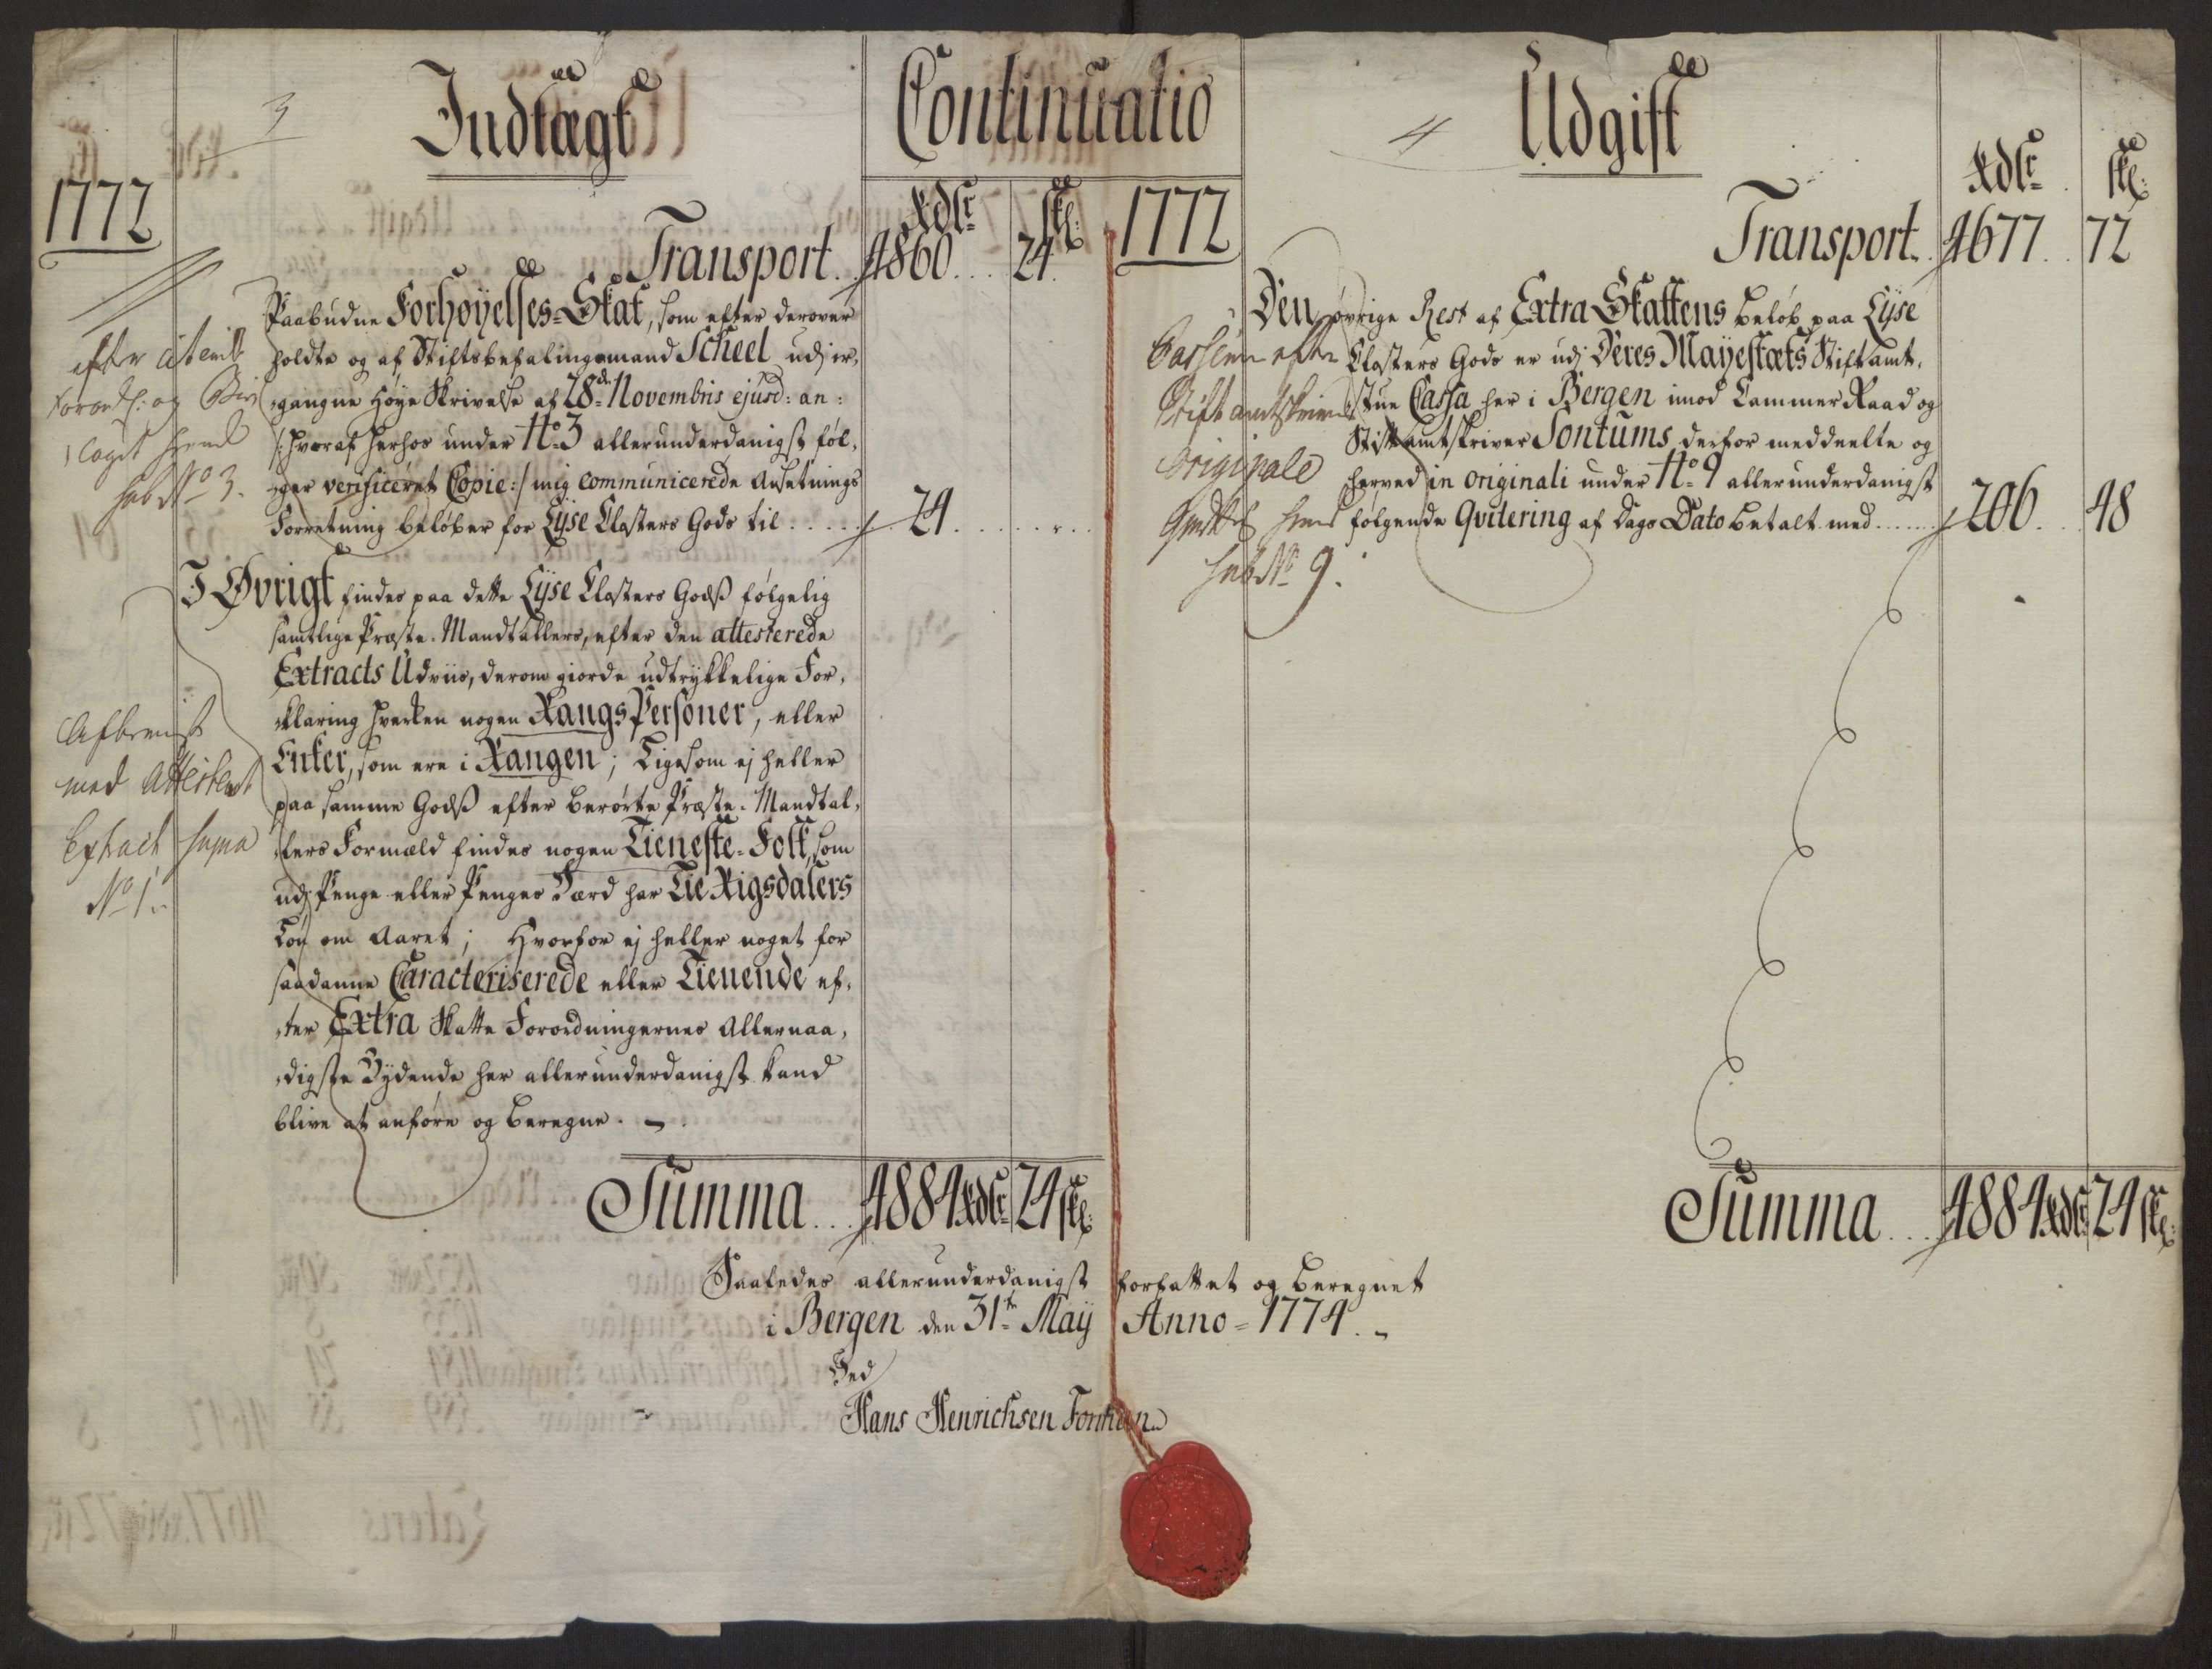 3
Indtægt
Continuatio
1772
Rdlr skl:
Transport. 4860. 24.
Paabudne Forhøyelses-Skat, som efter derover
holdte og af Stiftsbefalingsmand Scheel udj er,
gangne Høye Skrivelse af 28de Novembris ejusd: an:
/: hvoraf herhos under No. 3 allerunderdanigst føl,
ger verificeret Copie :/ mig communicerede Ansetnings
Forretning beløber for Lyse Closters Gods til ..... 24.
efter
og
No 3.
I Øvrigt findes paa dette Lyse Closters Gods følgelig
samtlige Præste-Mandtallers, efter den attesterede
Extracts Udviis, derom giorde udtrykkelige For,
klaring hverken nogen Rangs Personer, eller
Enker, som ere i Rangen; Ligesom ej heller
paa samme Gods efter berørte Præste-Mandtal,
lers Formæld findes nogen Tieneste-Folk, som
udj Penge eller Penges Værd har Tie Rigsdalers
Løn om Aaret; Hvorfor ej heller noget for
saadanne Caracteriserede eller Tienende ef,
ter Extra Skatte Forordningernes Allernaa,
digste Bydende her allerunderdanigst kand
blive at anføre og beregne.
med Attesteret
Extract supra
No 1.
Summa... 4884 Rdlr 24 skl:
4
Udgift
1772
Rdlr skl:
Transport. 4677. 72
Den øvrige Rest af Extra Skattens beløb paa Lyse
Closters Gods er udj Deres Mayestæts Stiftamt,
stue Cassa her i Bergen imod Cammer Raad og
Stiftamtskriver Sontums derfor meddeelte og
herved in originali under No. 9 allerunderdanigst
følgende Qvitering af Dags Dato betalt med ..... 206. 48
efter
Stiftamtskriver
Originale
sub No 9.
Summa... 4884 Rdlr 24 skl:
Saaledes allerunderdanigst forfattet og beregnet
i Bergen den 31te May Anno 1774.
Ved
Hans Henrichsen Formann